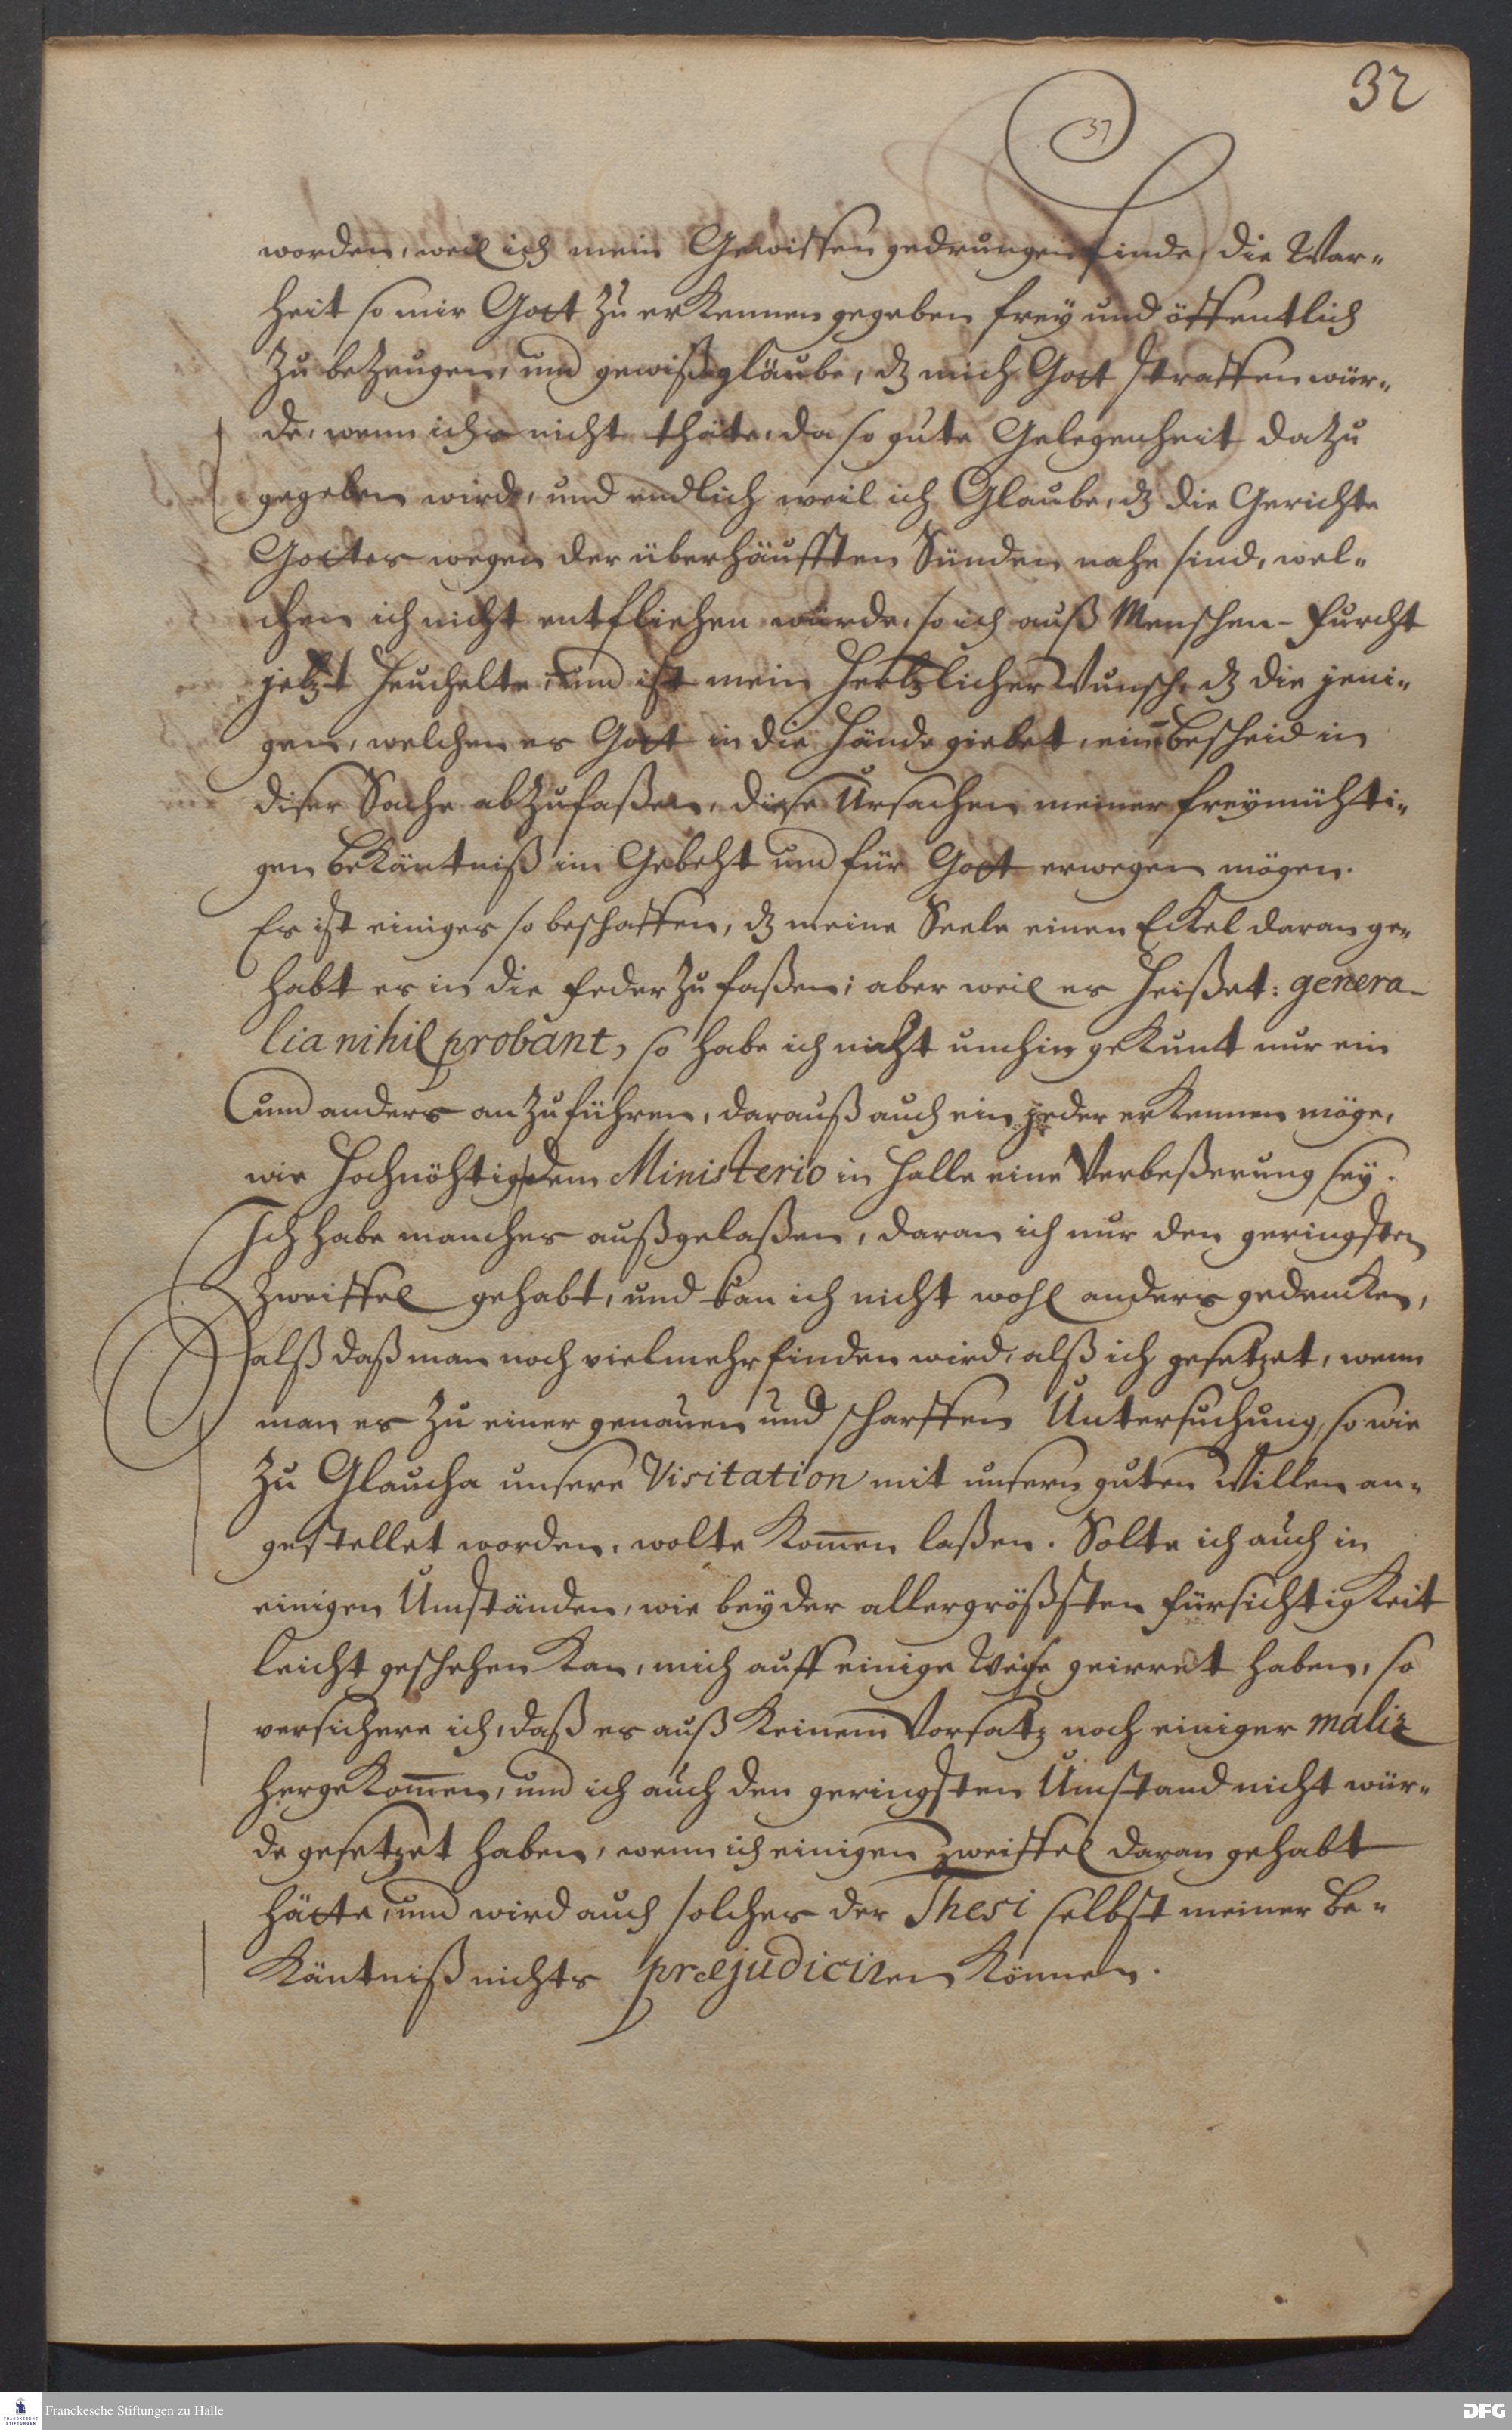 32
37
worden, weil ich mein Gewissen gedrungen finde, die War-
heit so mir Gott zu erkennen gegeben frey und öffentlich
zu bezeugen, und gewiß gläube, dz mich Gott straffen wür-
de, wenn ichs nicht thäte, da so gute Gelegenheit dazu
gegeben wird, und endlich weil ich Glaube, dz die Gerichte
Gottes wegen der überhäufften Sünden nahe sind, wel-
chen ich nicht entfliehen würde, so ich auß Menschen-Furcht
jetzt heuchelte, und ist mein hertzlicher Wunsch, dz die jeni-
gen, welchen es Gott in die Hände giebet, ein Bescheid in
diser Sache abzufaßen, diese Ursachen meiner freymühti-
gen Bekäntniß im Gebeht und für Gott erwegen mögen.
Es ist einiges so beschaffen, dz meine Seele einen Eckel daran ge-
habt es in die Feder zu faßen; aber weil es heißet: genera-
lia nihil probant, so habe ich nicht umhin gekunt nur ein
und anders anzuführen, darauß auch ein jeder erkennen möge,
wie hochnöhtig dem Ministerio in Halle eine Verbeßerung sey.
Ich habe manches außgelaßen, daran ich nur den geringsten
Zweiffel gehabt, und kan ich nicht wohl anders gedencken,
alß daß man noch vielmehr finden wird, alß ich gesetzet, wenn
man es zu einer genauen und scharffen Untersuchung, so wie
zu Glaucha unsere Visitation mit unsern guten Willen an-
gestellet worden, wolte kom̄en laßen. Solte ich auch in
einigen Umständen, wie bey der allergrößsten Fürsichtigkeit
leicht geschehen kan, mich auff einige Weise geirret haben, so
versichere ich, daß es auß keinem Vorsatz noch einiger maliz
hergekom̄en, und ich auch den geringsten Umstand nicht wür-
de gesetzet haben, wenn ich einigen Zweiffel daran gehabt
hätte, und wird auch solches der Thesi selbst meiner Be-
käntniß nichts præjudiciren können.
Franckesche Stiftungen zu Halle
FRANCKESCHE STIFTUNGEN
DFG